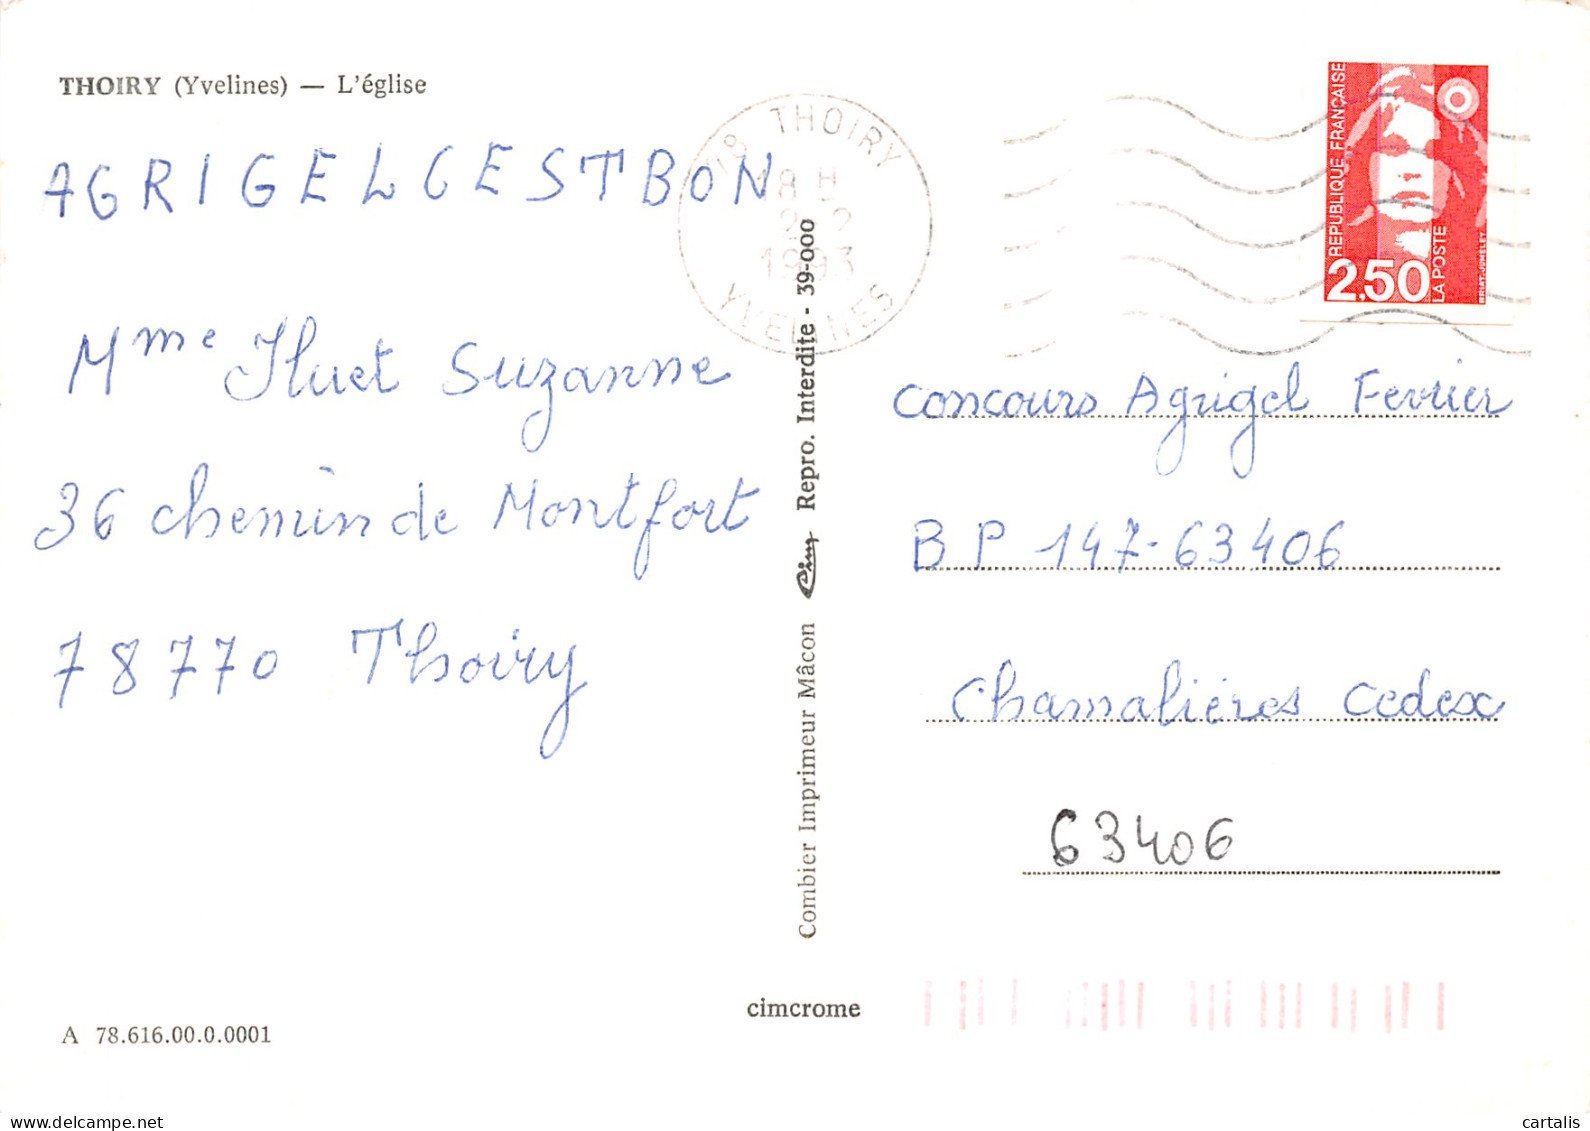 THOIRY (Yvelines) — L'église
AGRIGELCESTBON
Mme Huet Suzanne
36 chemin de Montfort
78770 Thoiry
78 THOIRY
18 H
2 2
1993
YVELINES
REPUBLIQUE FRANÇAISE
2,50
LA POSTE
BRIAT-JUMELET
concours Agrigel Fevrier
BP 147-63406
Chamalières Cedex
63406
Combier Imprimeur Mâcon Cim Repro. Interdite - 39-000
cimcrome
A 78.616.00.0.0001
www.delcampe.net
cartalis